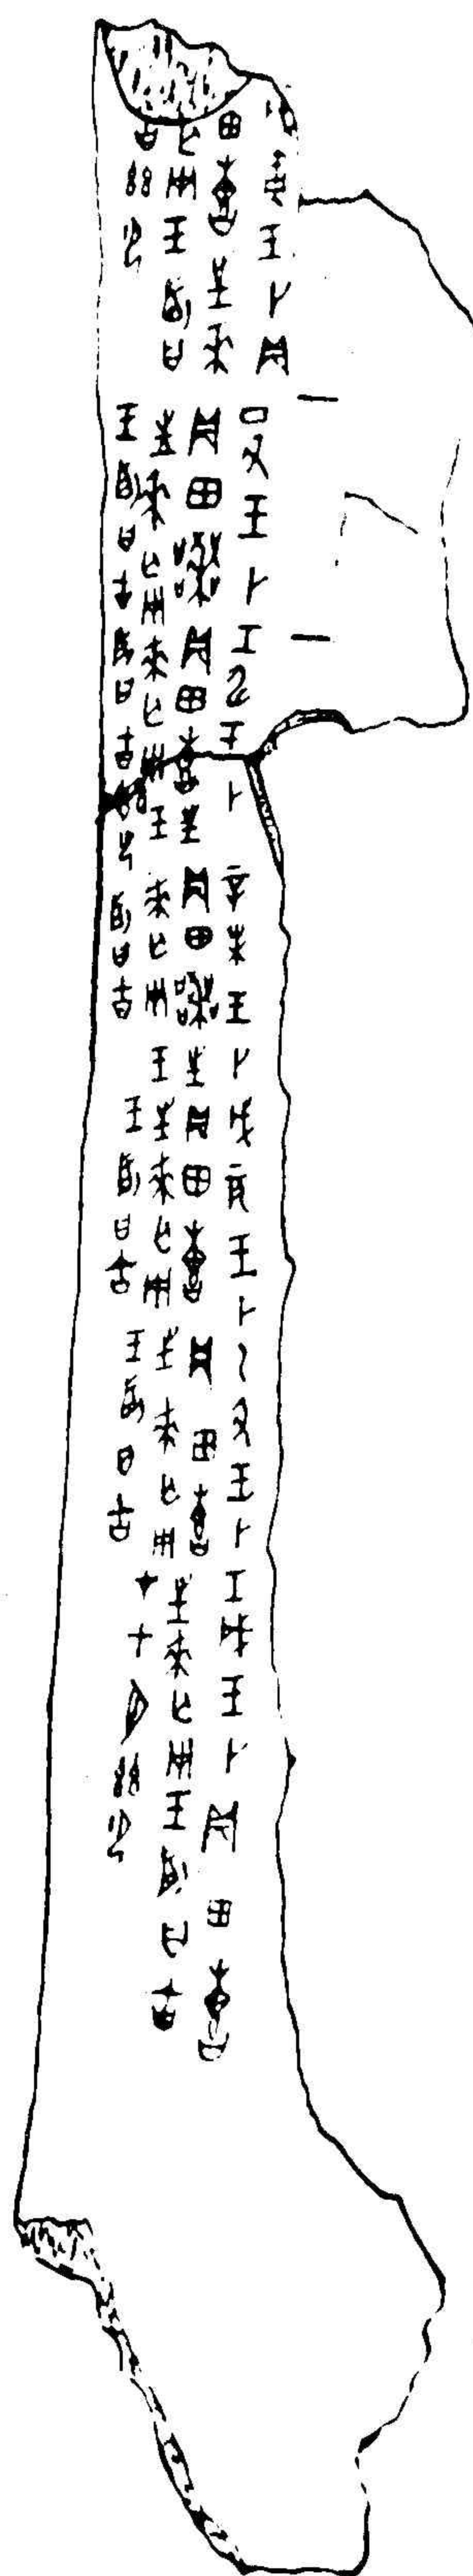 寅王卜貞
田喜往來
亡災王占曰
吉茲御
丁丑王卜
貞田
往來亡災
王占曰吉
壬申王卜
貞田喜往
來亡災王
占曰吉茲御
辛未王卜
貞田往
來亡災王
占曰吉
戊辰王卜
貞田喜
往來亡災
王占曰吉
乙丑王卜
貞田喜
往來亡災
王占曰吉
壬戌王卜貞
田喜
往來亡災王占曰吉
在十月茲御